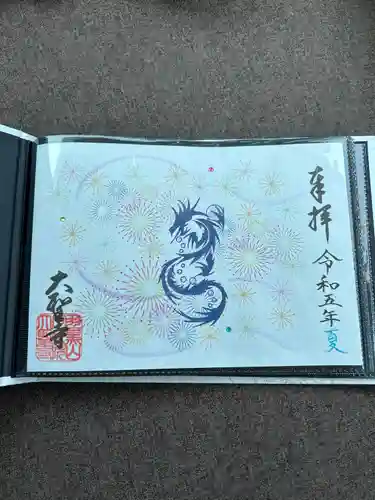 奉拝
令和五年夏
大聖寺